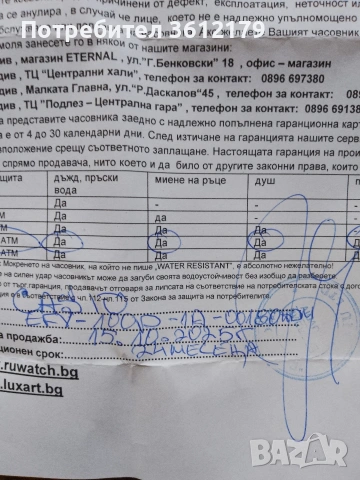 Потребител 3612179
причинени от дефект, експлоатация, неточност и
е анулира, в случай че лице, което не е упълномощено
моля занесете го в някои от нашите магазини:
див , магазин ETERNAL , ул."Г.Бенковски" 18 , офис – магазин
див , ТЦ "Централни Хали", телефон за контакт: 0896 697380
див , Малката Главна, ул."Р.Даскалов"45 , телефон за контакт:
див , ТЦ "Подлез – Централна гара" , телефон за контакт: 0896 69138
а представите часовника заедно с надлежно попълнена гаранционна кар
е от 4 до 30 календарни дни. След изтичане на гаранцията нашите серв
оположение срещу съответното заплащане. Настоящата гаранция на прои
спрямо продавача, нито което и да било от другите законни права, които
щита
дъжд, пръски вода
миене на ръце
душ
Да - -
М Да Да -
АТМ Да Да Да
АТМ Да Да Да
: Мокренето на часовник, на който не пише „WATER RESISTANT", е абсолютно нежелателно!
и на силен удар часовникът може да загуби своята водоустойчивост без изобщо да разберете.
от тър гаранция, продавачът отговаря за липсата на съответствие на потребителската стока с дого
ия в съответствие на чл.112 -чл.115 от Закона за защита на потребителите
а продажба:
ационен срок: 24 МЕСЕЦА
.ruwatch.bg
.luxart.bg
BAZAR